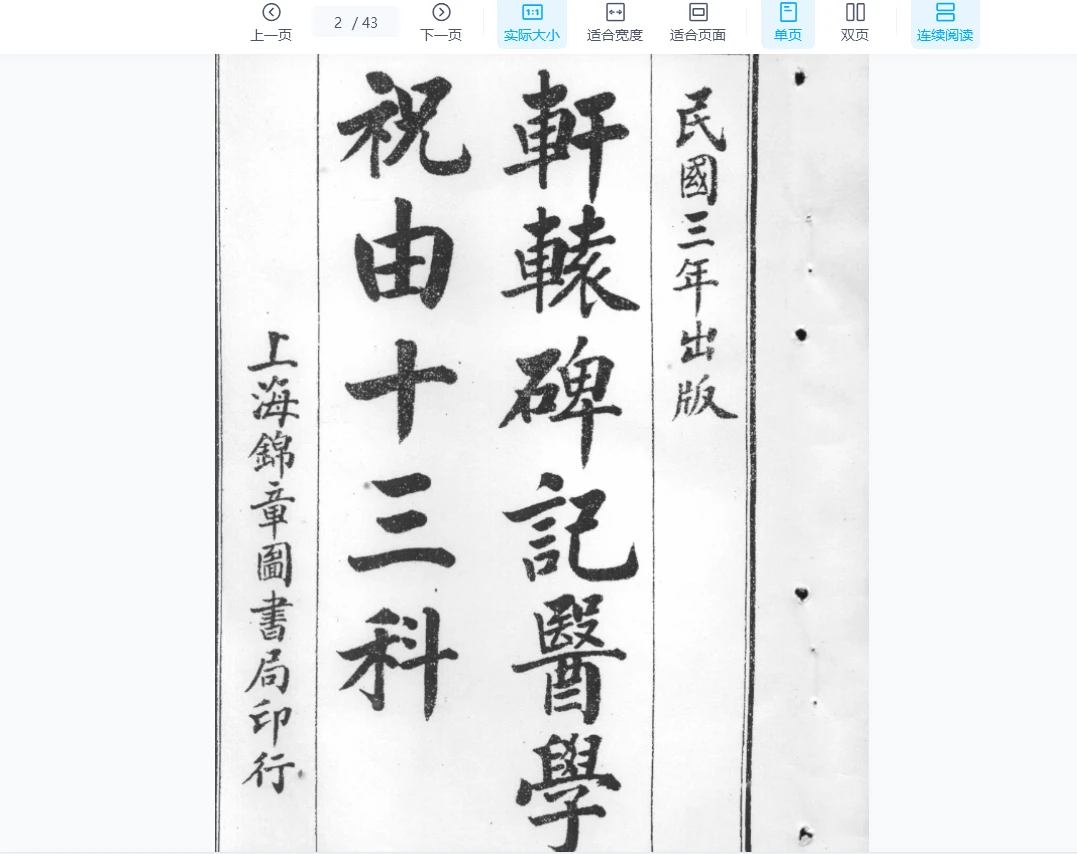 上一页
2 / 43
下一页
1:1
实际大小
适合宽度
适合页面
单页
双页
连续阅读
民國三年出版
軒轅碑記醫學
祝由十三科
上海錦章圖書局印行